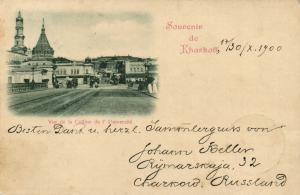 Souvenir
de
Kharkoff
17/30/X. 1900
Vue de la Colline de l'Université
Besten Dank u. herzl. Sammlergruss von
Johann Keller
Rymarskaja, 32
Charkow, Russland